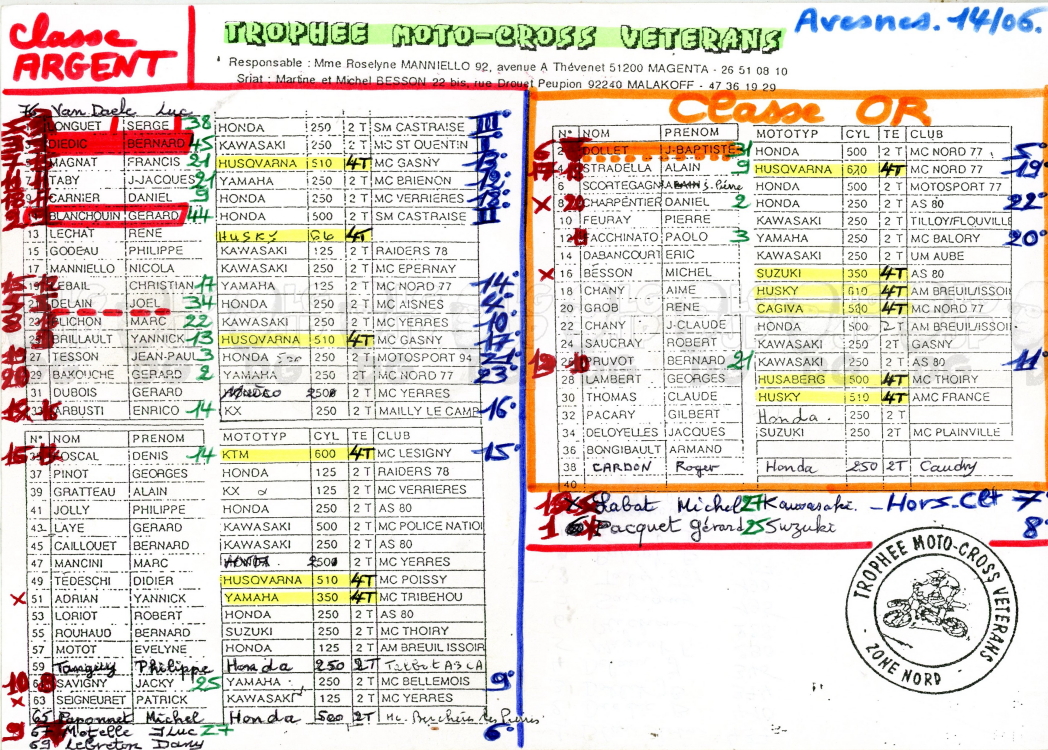 Classe ARGENT
TROPHEE MOTO-CROSS VETERANS
Avesnes. 14/06.
Responsable : Mme Roselyne MANNIELLO 92, avenue A Thévenet 51200 MAGENTA - 26 51 08 10
Sriat : Martine et Michel BESSON 22 bis, rue Drouet Peupion 92240 MALAKOFF - 47 36 19 29
76 Van Daele Luc
LONGUET SERGE 38 HONDA 250 2 T SM CASTRAISE III
DIEDIC BERNARD 45 KAWASAKI 250 2 T MC ST QUENTIN I
MAGNAT FRANCIS 21 HUSQVARNA 510 4T MC GASNY 13°
TABY J-JACQUES 21 YAMAHA 250 2 T MC BRIENON 12°
CARNIER DANIEL 9 HONDA 250 2 T MC VERRIERES 18°
BLANCHOUIN GERARD 44 HONDA 500 2 T SM CASTRAISE II
13 LECHAT RENE HUSKY 4T
15 GODEAU PHILIPPE KAWASAKI 125 2 T RAIDERS 78
17 MANNIELLO NICOLA KAWASAKI 250 2 T MC EPERNAY
19 LEBAIL CHRISTIAN 17 YAMAHA 125 2 T MC NORD 77 14°
21 DELAIN JOEL 34 HONDA 250 2 T MC AISNES 4°
23 BLICHON MARC 22 KAWASAKI 250 2 T MC YERRES 10°
25 BRILLAULT YANNICK 13 HUSQVARNA 510 4T MC GASNY 17°
27 TESSON JEAN-PAUL 3 HONDA 500 250 2 T MOTOSPORT 94 21°
29 BAKOUCHE GERARD 2 YAMAHA 250 2 T MC NORD 77 23°
31 DUBOIS GERARD 250 MC YERRES
33 ARBUSTI ENRICO 14 KX 250 2 T MAILLY LE CAMP 16°
N° NOM PRENOM MOTOTYP CYL TE CLUB
KOSCAL DENIS 14 KTM 600 4T MC LESIGNY 15°
37 PINOT GEORGES HONDA 125 2 T RAIDERS 78
39 GRATTEAU ALAIN KX 125 2 T MC VERRIERES
41 JOLLY PHILIPPE HONDA 250 2 T AS 80
43 LAYE GERARD KAWASAKI 500 2 T MC POLICE NATIO
45 CAILLOUET BERNARD KAWASAKI 250 2 T AS 80
47 MANCINI MARC HONDA 250 2 T MC YERRES
49 TEDESCHI DIDIER HUSQVARNA 510 4T MC POISSY
x 51 ADRIAN YANNICK YAMAHA 350 4T MC TRIBEHOU
53 LORIOT ROBERT HONDA 250 2 T AS 80
55 ROUHAUD BERNARD SUZUKI 250 2 T MC THOIRY
57 MOTOT EVELYNE HONDA 125 2 T AM BREUIL ISSOIR
59 Tanguy Philippe Honda 250 2T
10 8 SAVIGNY JACKY 25 YAMAHA 250 2 T MC BELLEMOIS 9°
x 63 SEIGNEURET PATRICK KAWASAKI 125 2 T MC YERRES
65 Paponnet Michel Honda 500 2T
9 67 Motelle JLuc 27 6°
69 Lebreton Dany
Classe OR
N° NOM PRENOM MOTOTYP CYL TE CLUB
6 2 DOLLET J-BAPTISTE 31 HONDA 500 2 T MC NORD 77 5°
STRADELLA ALAIN 9 HUSQVARNA 4T MC NORD 77 19°
6 SCORTEGAGNA HONDA 500 2 T MOTOSPORT 77
x 8 20 CHARPENTIER DANIEL 2 HONDA 250 2 T AS 80 22°
10 FEURAY PIERRE KAWASAKI 250 2 T TILLOY/FLOUVILLE
12 FACCHINATO PAOLO 3 YAMAHA 250 2 T MC BALORY 20°
14 DABANCOURT ERIC KAWASAKI 250 2 T UM AUBE
x 16 BESSON MICHEL SUZUKI 350 4T AS 80
18 CHANY AIME HUSKY 610 4T AM BREUIL/ISSOI
20 GROB RENE CAGIVA 500 4T MC NORD 77
22 CHANY J-CLAUDE HONDA 500 2T AM BREUIL/ISSOI
24 SAUCRAY ROBERT KAWASAKI 250 2 T GASNY
19 10 PRUVOT BERNARD 21 KAWASAKI 250 2 T AS 80 11°
28 LAMBERT GEORGES HUSABERG 500 4T MC THOIRY
30 THOMAS CLAUDE HUSKY 510 4T AMC FRANCE
32 PACARY GILBERT Honda. 250 2 T
34 DELOYELLES JACQUES SUZUKI 250 2T MC PLAINVILLE
36 BONGIBAULT ARMAND
38 CARDON Roger Honda 250 2T Caudry
40
Labat Michel 27 Kawasaki. - Hors. Clt 7°
1 Pacquet Gérard 25 Suzuki 8°
TROPHEE MOTO-CROSS VETERANS
- ZONE NORD -